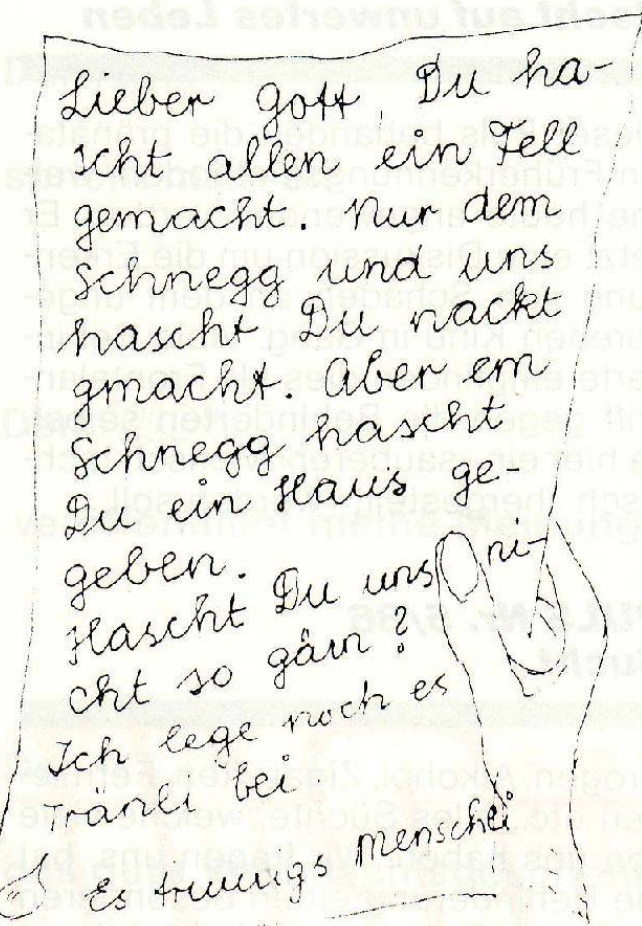 Lieber Gott, Du ha-
scht allen ein Fell
gemacht. Nur dem
Schnegg und uns
hascht Du nackt
gmacht. Aber em
Schnegg hascht
Du ein Haus ge-
geben.
Hascht Du uns ni-
cht so gärn?
Ich lege noch es
Tränli bei
Es truurigs Menschli